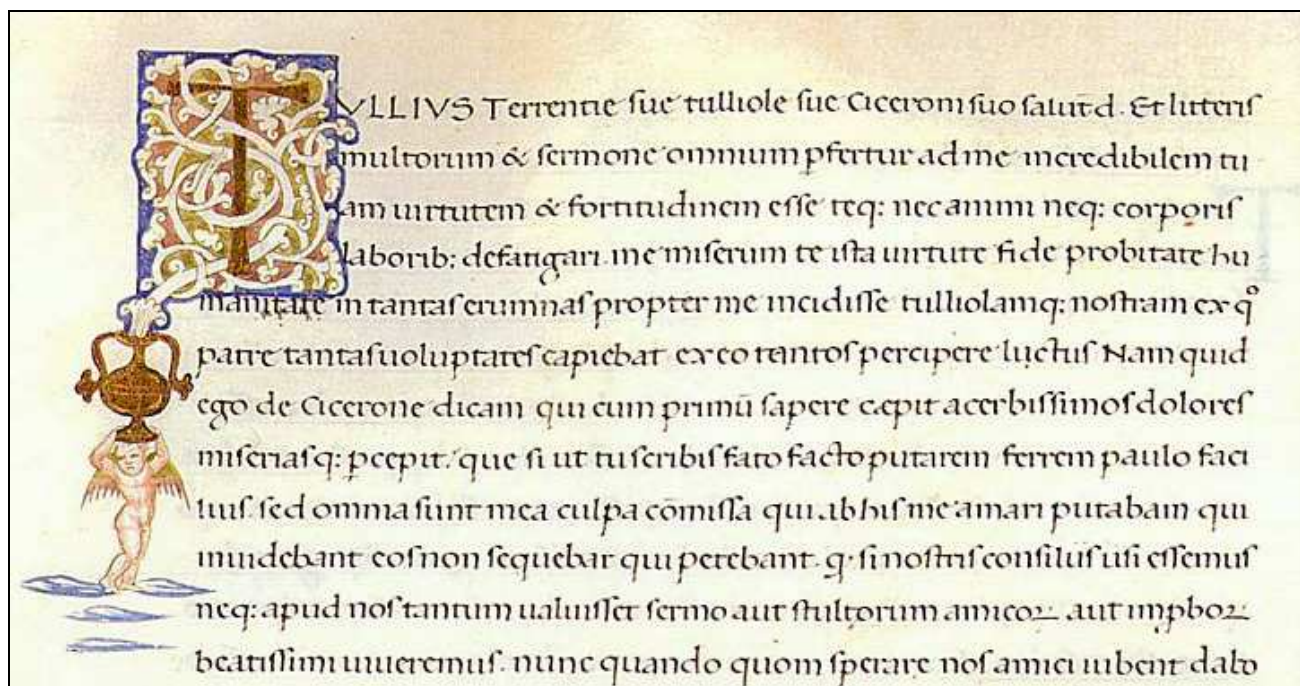 TVLLIVS Terrentie sue tulliole sue Ciceroni suo salut d. Et litteris
multorum & sermone omnium p̲fertur ad me incredibilem tu
am uirtutem & fortitudinem esse teq: nec animi neq: corporis
laborib: defatigari. me miserum te ista uirtute fide probitate hu
manitate in tantas erumnas propter me incidisse tulliolamq: nostram ex qº
patre tantas uoluptates capiebat ex eo tantos percipere luctus Nam quid
ego de Cicerone dicam qui cum primū sapere cæpit acerbissimos dolores
miseriasq: ꝑcepit. que si ut tu scribis fato facto putarem ferrem paulo faci
lius sed omnia sunt mea culpa cōmissa qui ab his me amari putabam qui
inuidebant eos non sequebar qui petebant. ꝙ si nostris consiliis usi essemus
neq: apud nos tantum ualuisset sermo aut stultorum amicoꝝ aut imꝓboꝝ
beatissimi uiueremus. nunc quando quom sperare nos amici iubent dabo